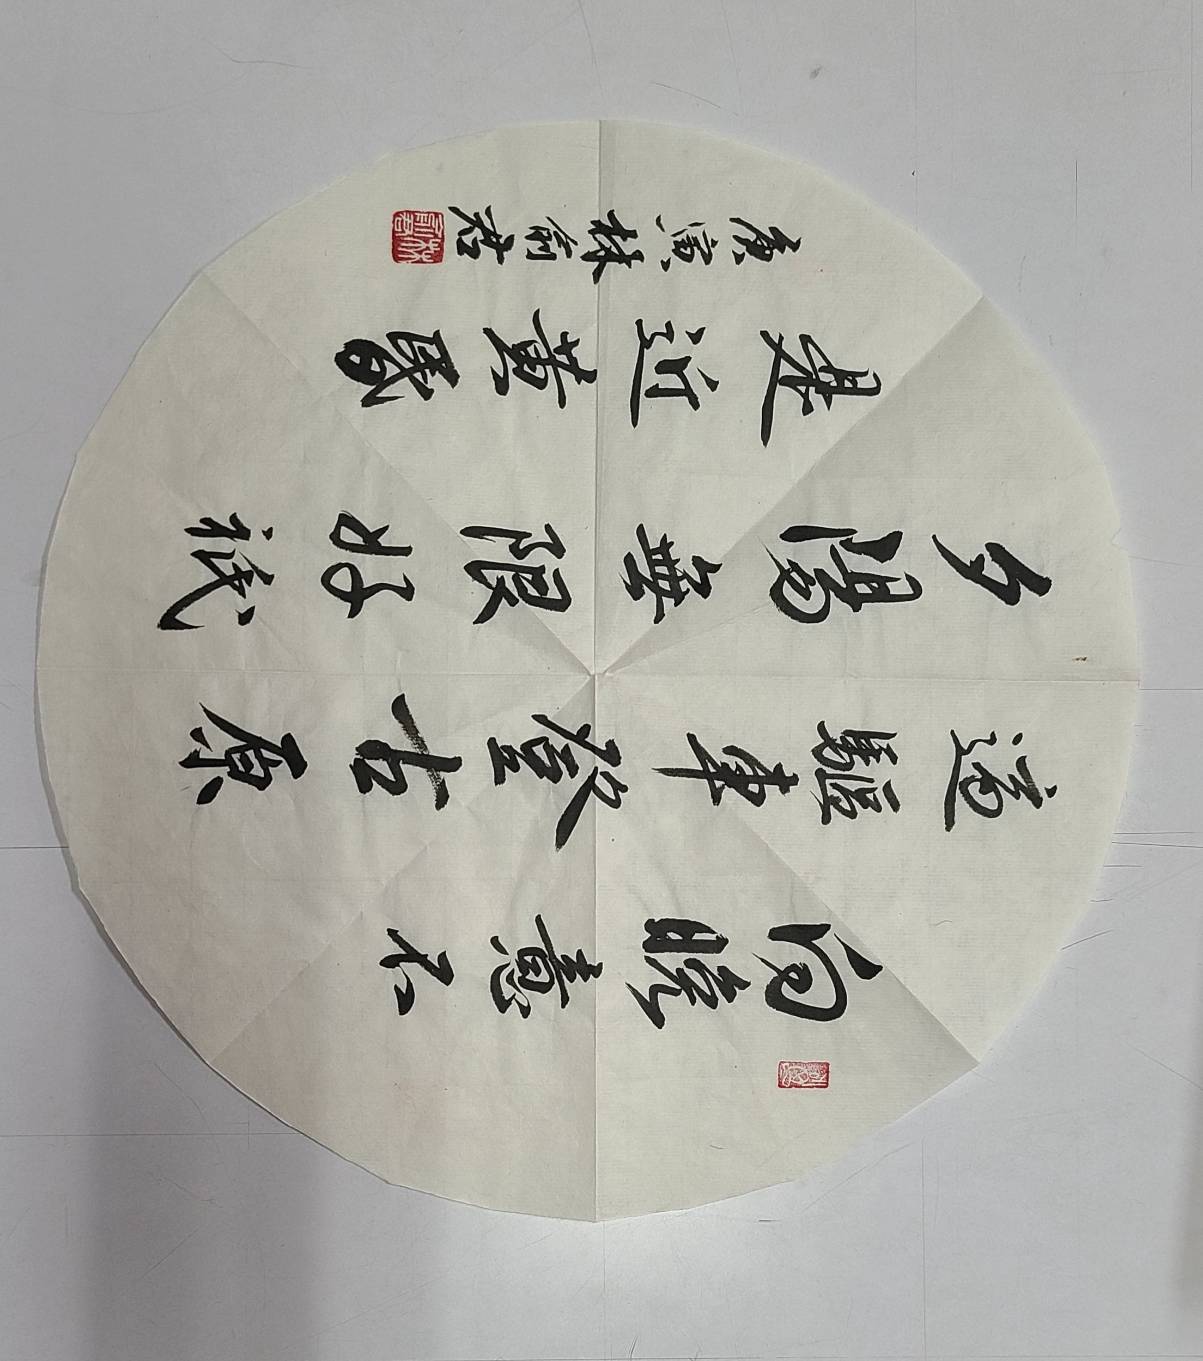 向晚意不
適驅車登古原
夕陽無限好祇
是近黃昬
庚寅林俞君
林俞君